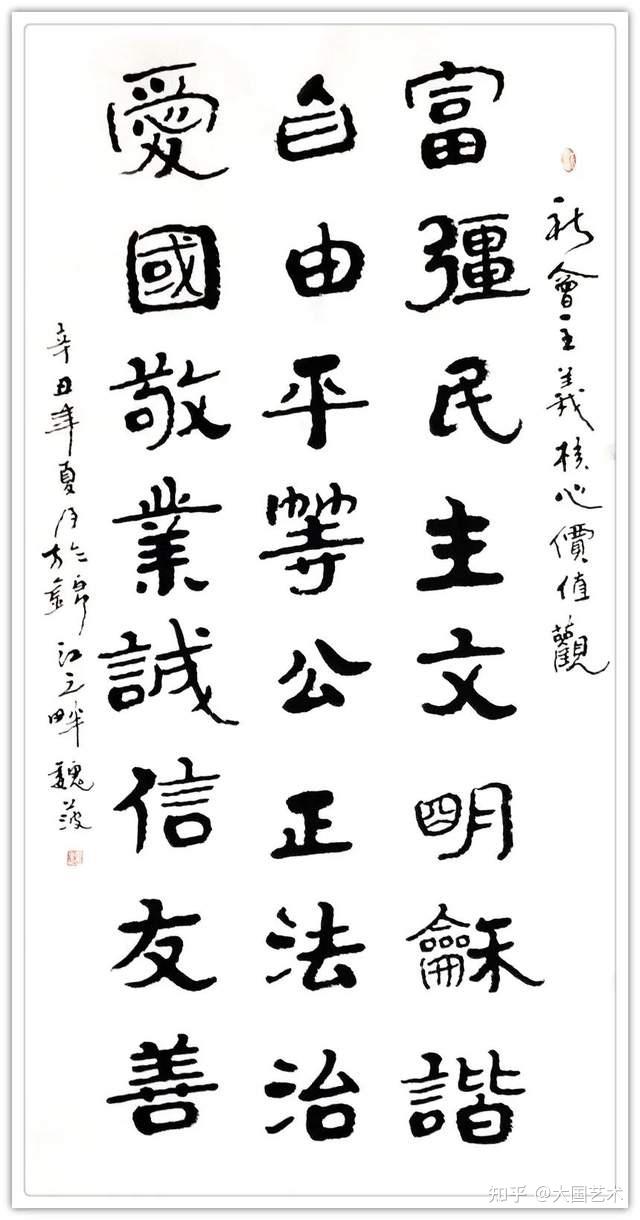 社會主義核心價值觀
富彊民主文明龢諧
自由平等公正法治
愛國敬業誠信友善
辛丑年夏月於錦江之畔魏菠
知乎 @大国艺术